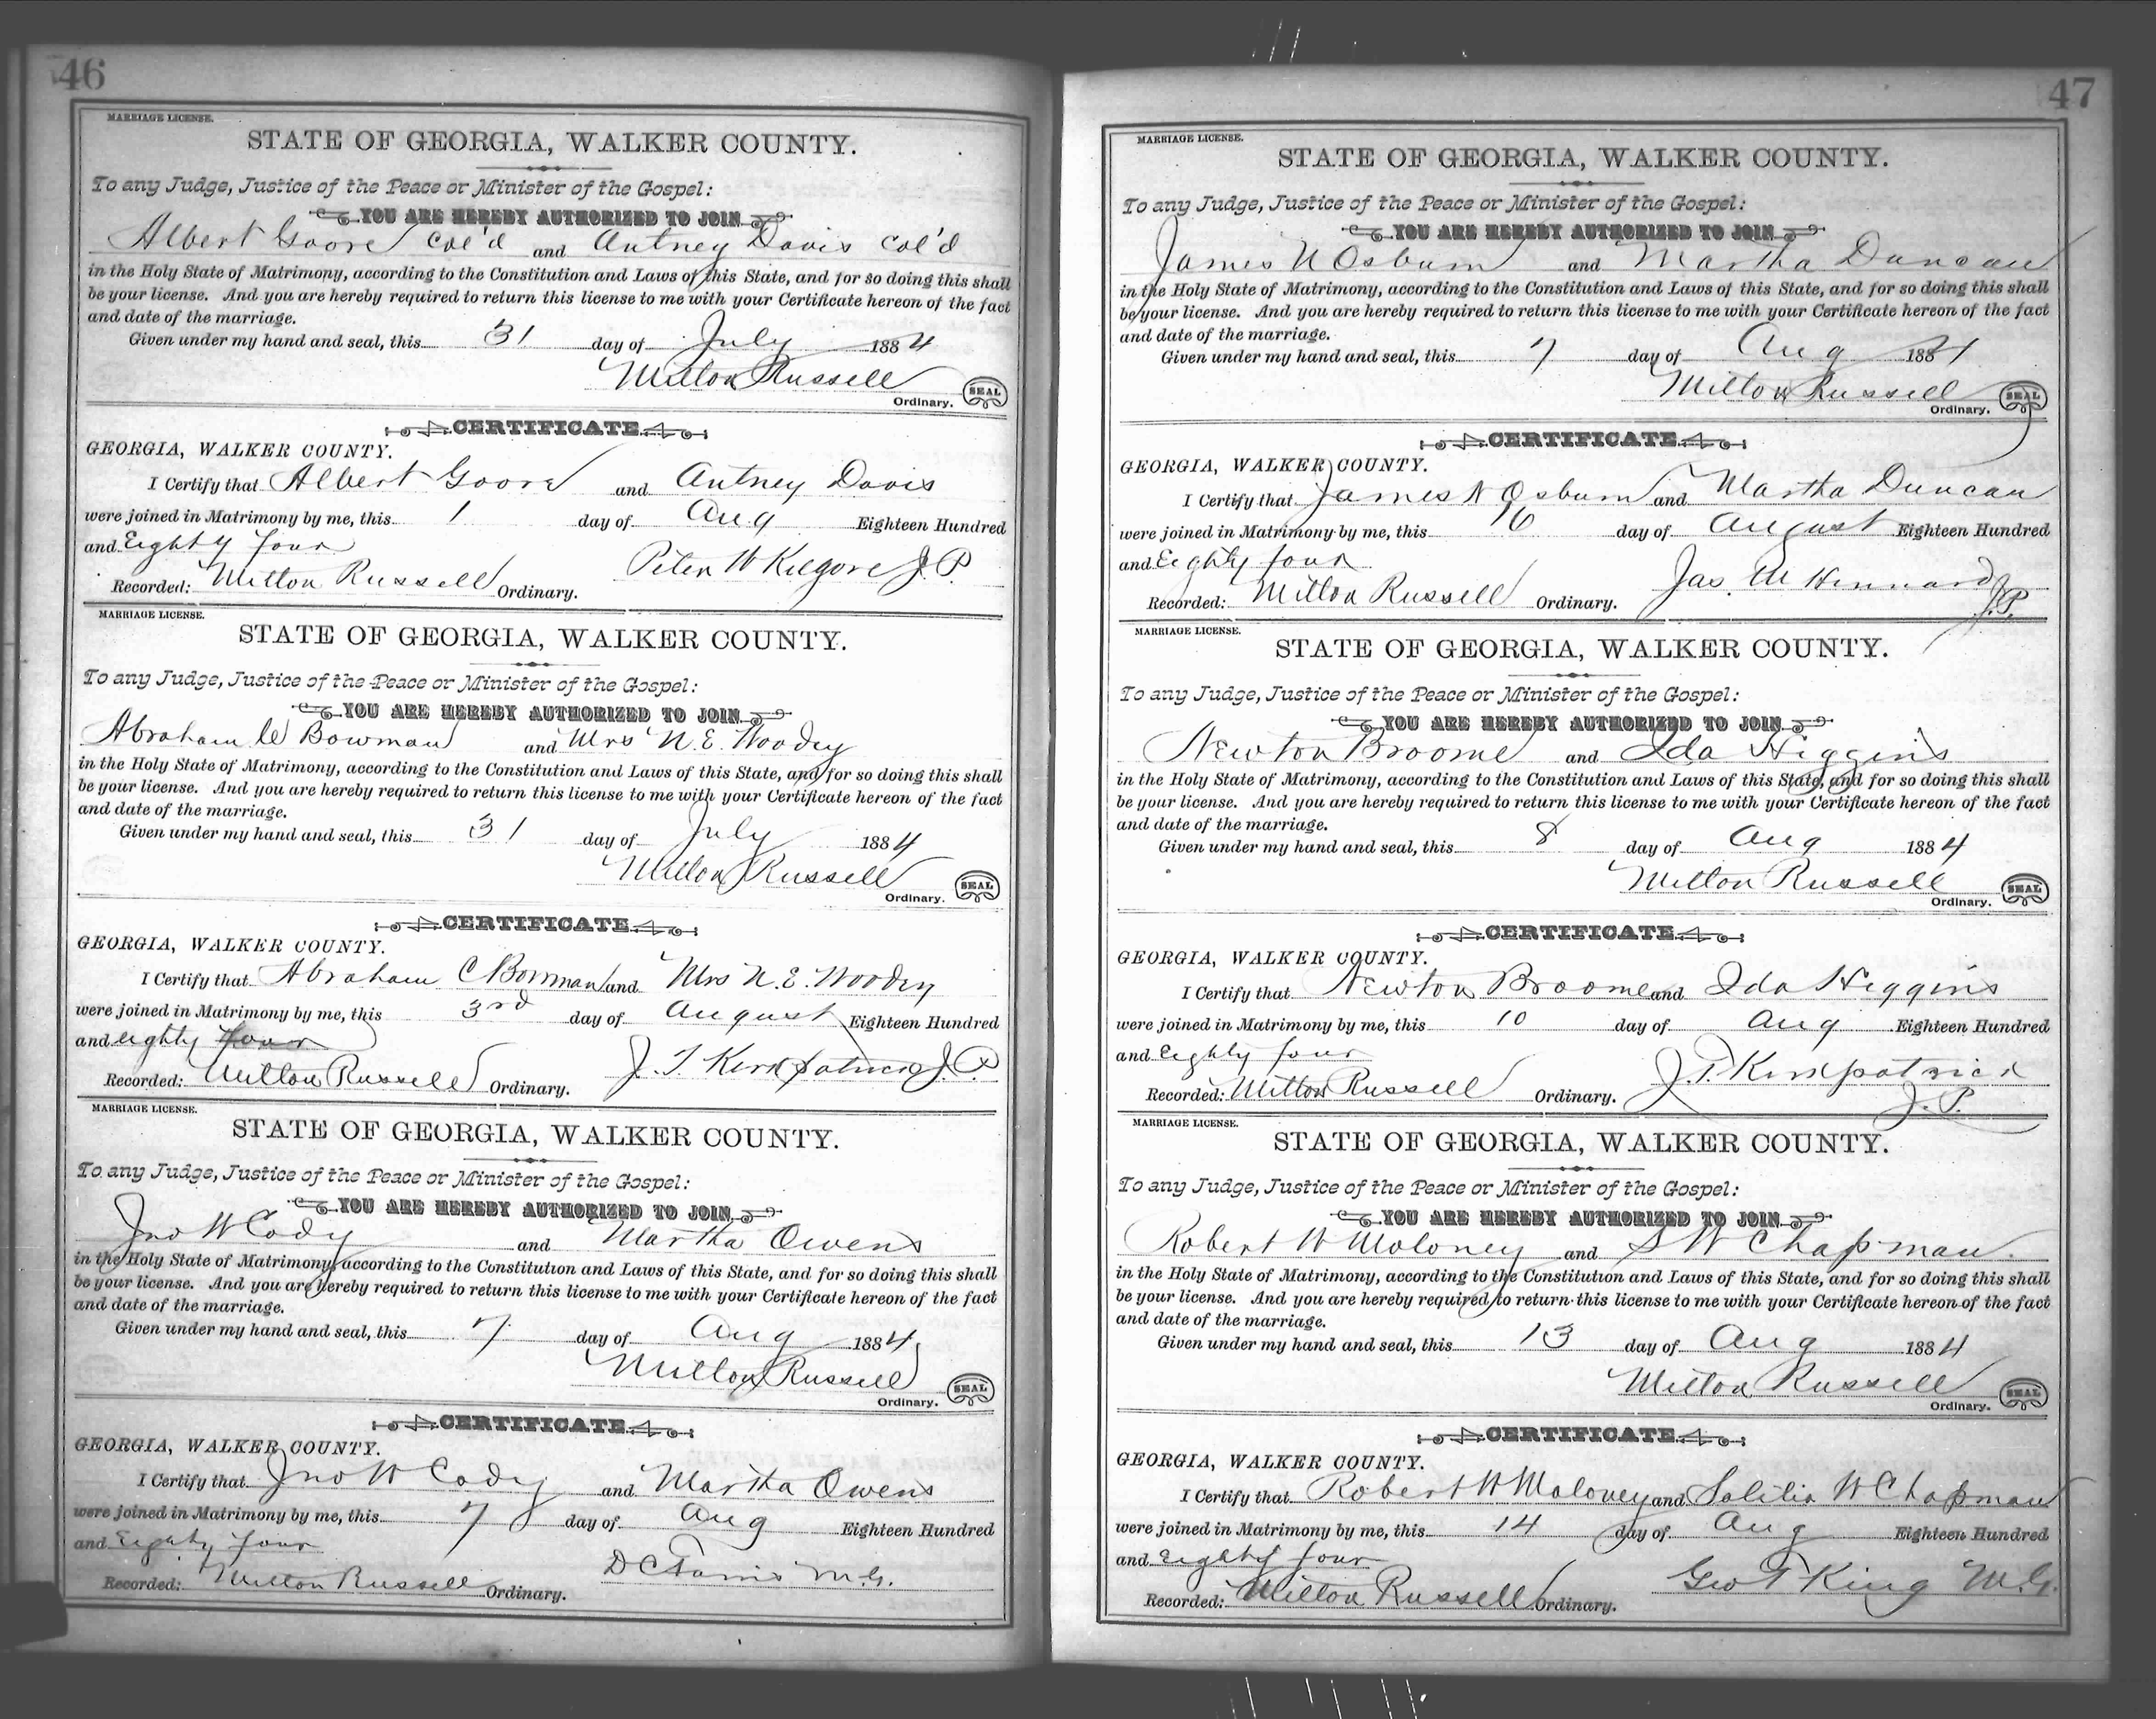 46
MARRIAGE LICENSE.
STATE OF GEORGIA, WALKER COUNTY.
To any Judge, Justice of the Peace or Minister of the Gospel:
YOU ARE HEREBY AUTHORIZED TO JOIN
Albert Goore Col'd and Antney Davis Col'd
in the Holy State of Matrimony, according to the Constitution and Laws of this State, and for so doing this shall
be your license. And you are hereby required to return this license to me with your Certificate hereon of the fact
and date of the marriage.
Given under my hand and seal, this 31 day of July 1884
Milton Russell
Ordinary. SEAL
CERTIFICATE
GEORGIA, WALKER COUNTY.
I Certify that Albert Goore and Antney Davis
were joined in Matrimony by me, this 1 day of Aug Eighteen Hundred
and Eighty four
Peter W Kilgore J.P.
Recorded: Milton Russell Ordinary.
MARRIAGE LICENSE.
STATE OF GEORGIA, WALKER COUNTY.
To any Judge, Justice of the Peace or Minister of the Gospel:
YOU ARE HEREBY AUTHORIZED TO JOIN
Abraham C Bowman and Mrs N.E. Woody
in the Holy State of Matrimony, according to the Constitution and Laws of this State, and for so doing this shall
be your license. And you are hereby required to return this license to me with your Certificate hereon of the fact
and date of the marriage.
Given under my hand and seal, this 31 day of July 1884
Milton Russell
Ordinary. SEAL
CERTIFICATE
GEORGIA, WALKER COUNTY.
I Certify that Abraham C Bowman and Mrs N.E. Woody
were joined in Matrimony by me, this 3rd day of August Eighteen Hundred
and eighty four
J. T. Kirkpatrick J.P.
Recorded: Milton Russell Ordinary.
MARRIAGE LICENSE.
STATE OF GEORGIA, WALKER COUNTY.
To any Judge, Justice of the Peace or Minister of the Gospel:
YOU ARE HEREBY AUTHORIZED TO JOIN
Jno W Cody and Martha Owens
in the Holy State of Matrimony, according to the Constitution and Laws of this State, and for so doing this shall
be your license. And you are hereby required to return this license to me with your Certificate hereon of the fact
and date of the marriage.
Given under my hand and seal, this 7 day of Aug 1884
Milton Russell
Ordinary. SEAL
CERTIFICATE
GEORGIA, WALKER COUNTY.
I Certify that Jno W Cody and Martha Owens
were joined in Matrimony by me, this 7 day of Aug Eighteen Hundred
and Eighty four
D C M.G.
Recorded: Milton Russell Ordinary.
47
MARRIAGE LICENSE.
STATE OF GEORGIA, WALKER COUNTY.
To any Judge, Justice of the Peace or Minister of the Gospel:
YOU ARE HEREBY AUTHORIZED TO JOIN
James N Osburn and Martha Duncan
in the Holy State of Matrimony, according to the Constitution and Laws of this State, and for so doing this shall
be your license. And you are hereby required to return this license to me with your Certificate hereon of the fact
and date of the marriage.
Given under my hand and seal, this 7 day of Aug 1884
Milton Russell
Ordinary. SEAL
CERTIFICATE
GEORGIA, WALKER COUNTY.
I Certify that James N Osburn and Martha Duncan
were joined in Matrimony by me, this day of August Eighteen Hundred
and Eighty four
Jas M
Recorded: Milton Russell Ordinary.
J.P.
MARRIAGE LICENSE.
STATE OF GEORGIA, WALKER COUNTY.
To any Judge, Justice of the Peace or Minister of the Gospel:
YOU ARE HEREBY AUTHORIZED TO JOIN
Newton Broome and Ida Higgins
in the Holy State of Matrimony, according to the Constitution and Laws of this State, and for so doing this shall
be your license. And you are hereby required to return this license to me with your Certificate hereon of the fact
and date of the marriage.
Given under my hand and seal, this 8 day of Aug 1884
Milton Russell
Ordinary. SEAL
CERTIFICATE
GEORGIA, WALKER COUNTY.
I Certify that Newton Broome and Ida Higgins
were joined in Matrimony by me, this 10 day of Aug Eighteen Hundred
and Eighty four
J.T. Kirkpatrick
Recorded: Milton Russell Ordinary.
J.P.
MARRIAGE LICENSE.
STATE OF GEORGIA, WALKER COUNTY.
To any Judge, Justice of the Peace or Minister of the Gospel:
YOU ARE HEREBY AUTHORIZED TO JOIN
Robert W Moloney and S W Chapman.
in the Holy State of Matrimony, according to the Constitution and Laws of this State, and for so doing this shall
be your license. And you are hereby required to return this license to me with your Certificate hereon of the fact
and date of the marriage.
Given under my hand and seal, this 13 day of Aug 1884
Milton Russell
Ordinary. SEAL
CERTIFICATE
GEORGIA, WALKER COUNTY.
I Certify that Robert W Moloney and W Chapman
were joined in Matrimony by me, this 14 day of Aug Eighteen Hundred
and eighty four
Geo T King M.G.
Recorded: Milton Russell Ordinary.